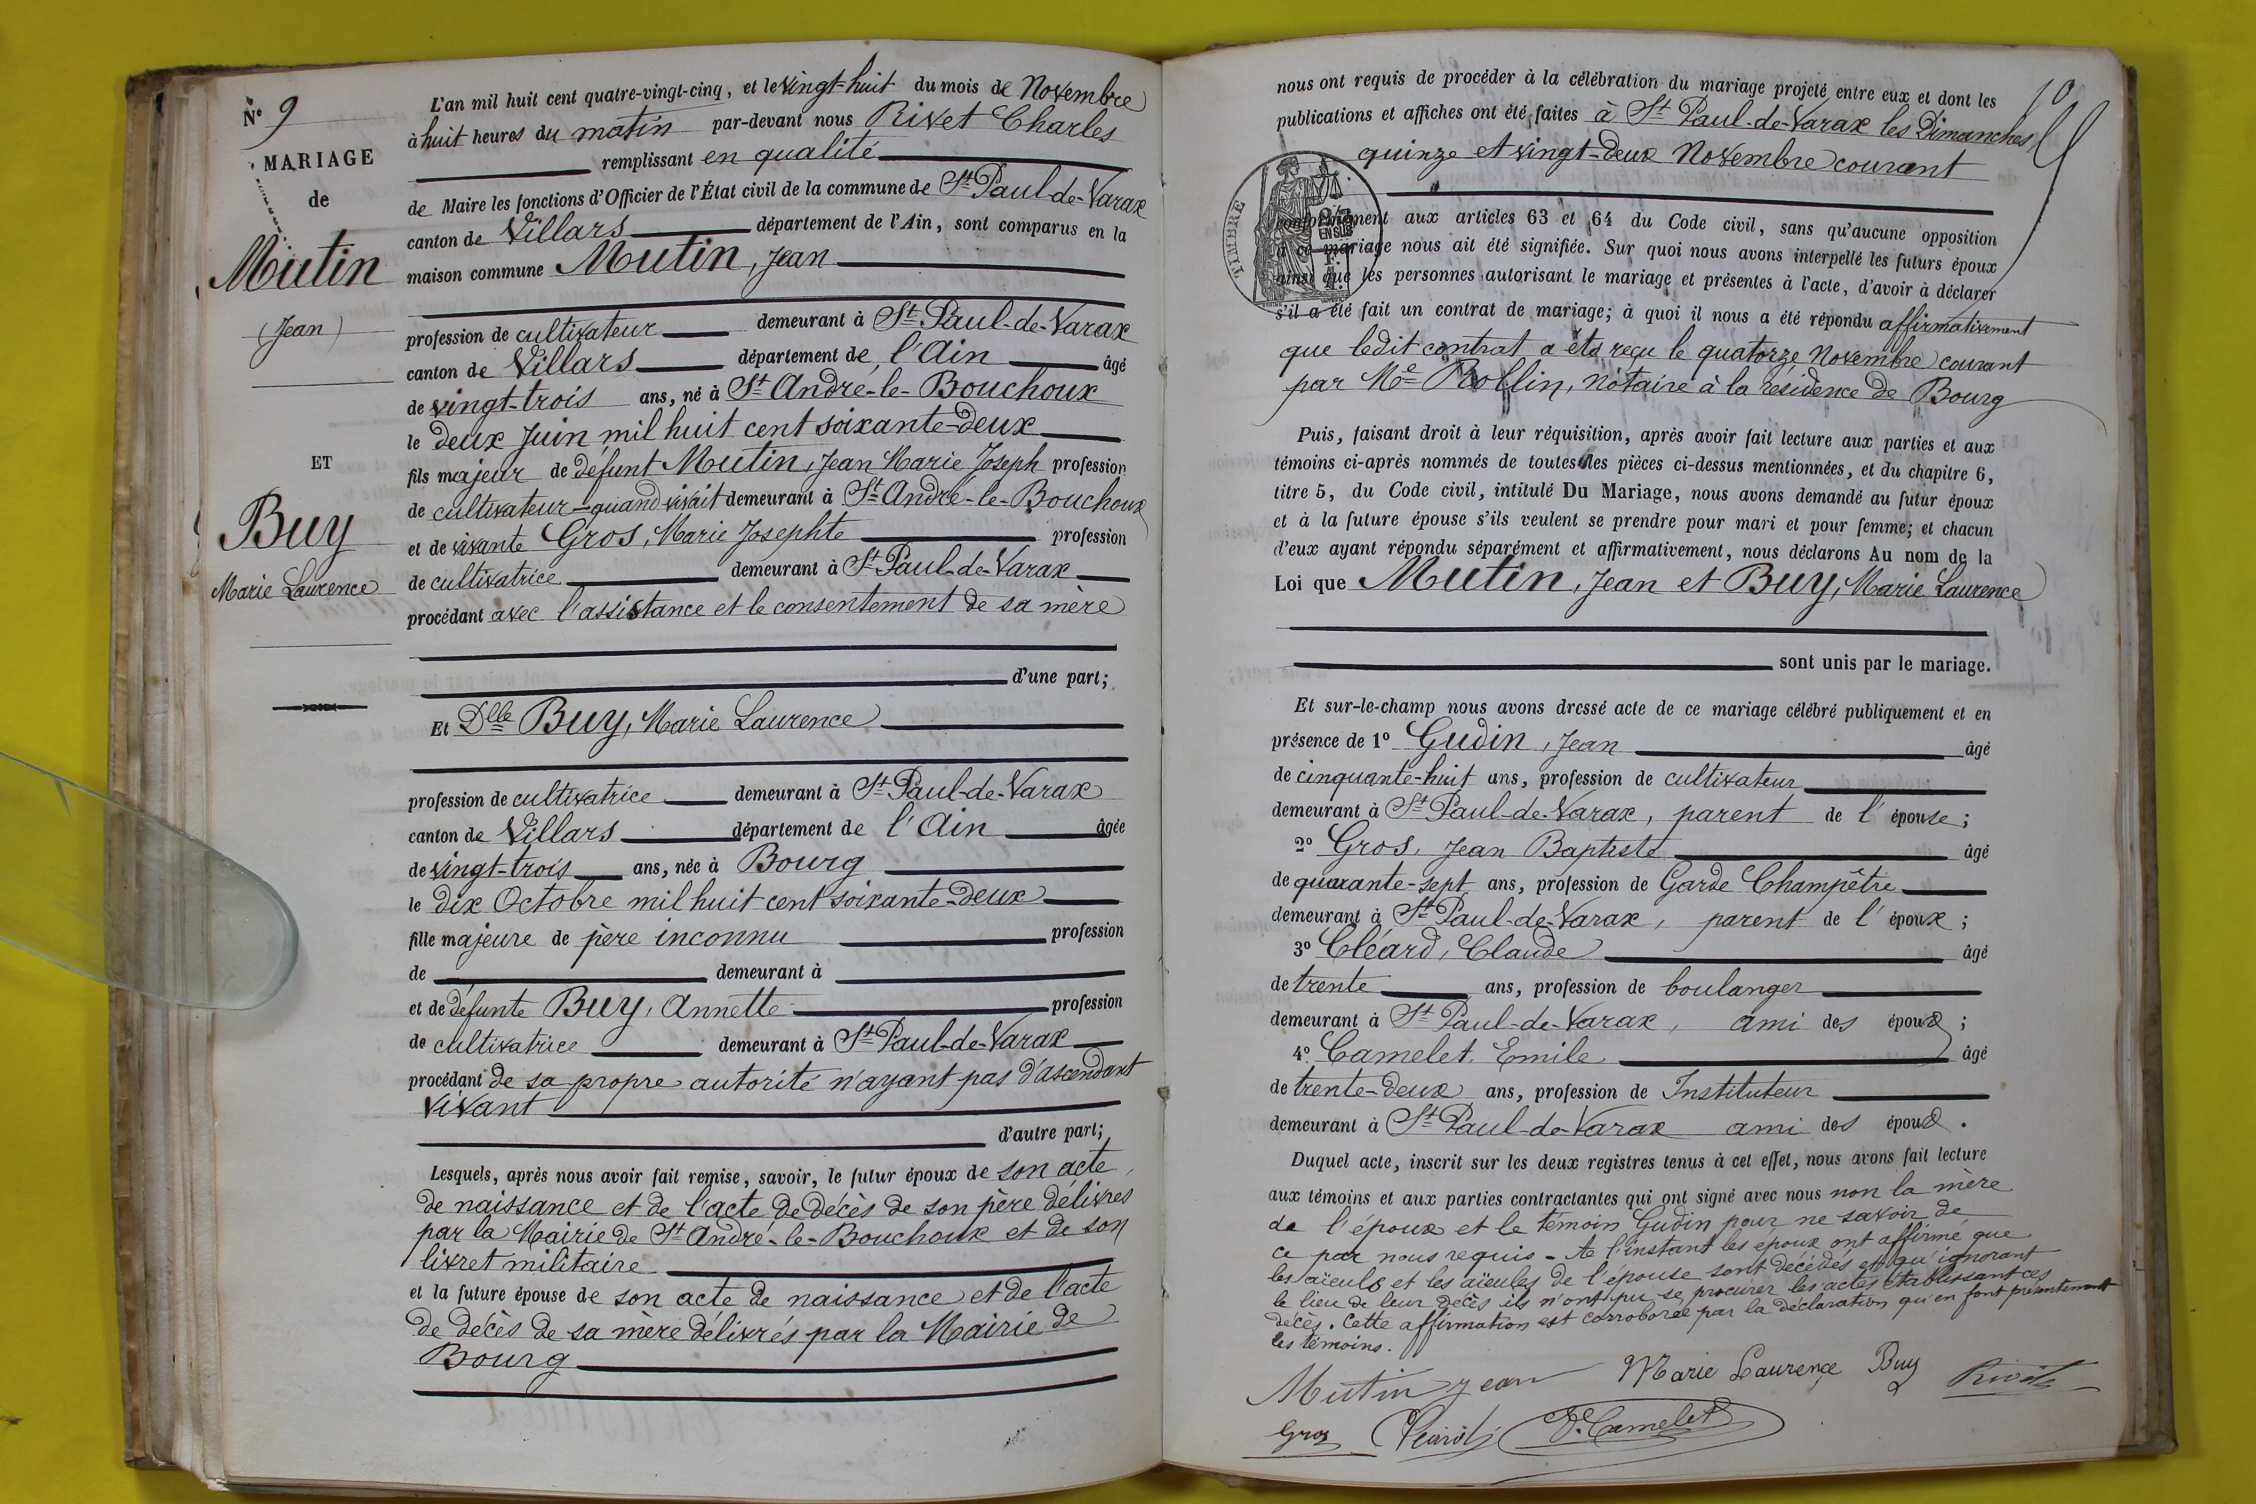 N° 9
MARIAGE
de
Mutin
(Jean)
ET
Buy
Marie Laurence
L'an mil huit cent quatre-vingt-cinq, et le vingt-huit du mois de Novembre
à huit heures du matin par-devant nous Rivet Charles
remplissant en qualité
de Maire les fonctions d'Officier de l'État civil de la commune de St Paul-de-Varax
canton de Villars département de l'Ain, sont comparus en la
maison commune Mutin, Jean
profession de cultivateur demeurant à St Paul-de-Varax
canton de Villars département de l'Ain âgé
de vingt-trois ans, né à St André-le-Bouchoux
le deux Juin mil huit cent soixante-deux
fils majeur de défunt Mutin, Jean Marie Joseph profession
de cultivateur quand vivait demeurant à St André-le-Bouchoux
et de vivante Gros, Marie Josephte profession
de cultivatrice demeurant à St Paul-de-Varax
procédant avec l'assistance et le consentement de sa mère
d'une part;
Et Dlle Buy, Marie Laurence
profession de cultivatrice demeurant à St Paul-de-Varax
canton de Villars département de l'Ain âgée
de vingt-trois ans, née à Bourg
le dix Octobre mil huit cent soixante-deux
fille majeure de père inconnu profession
de demeurant à
et de défunte Buy, Annette profession
de cultivatrice demeurant à St Paul-de-Varax
procédant de sa propre autorité n'ayant pas d'ascendant
vivant
d'autre part;
Lesquels, après nous avoir fait remise, savoir, le futur époux de son acte
de naissance et de l'acte de décès de son père délivrés
par la Mairie de St André-le-Bouchoux et de son
livret militaire
et la future épouse de son acte de naissance et de l'acte
de décès de sa mère délivrés par la Mairie de
Bourg
10
nous ont requis de procéder à la célébration du mariage projeté entre eux et dont les
publications et affiches ont été faites à St Paul-de-Varax les Dimanches
quinze et vingt-deux Novembre courant
TIMBRE
conformément aux articles 63 et 64 du Code civil, sans qu'aucune opposition
à ce mariage nous ait été signifiée. Sur quoi nous avons interpellé les futurs époux
ainsi que les personnes autorisant le mariage et présentes à l'acte, d'avoir à déclarer
s'il a été fait un contrat de mariage; à quoi il nous a été répondu affirmativement
que ledit contrat a été reçu le quatorze Novembre courant
par Me Rollin, notaire à la résidence de Bourg
Puis, faisant droit à leur réquisition, après avoir fait lecture aux parties et aux
témoins ci-après nommés de toutes les pièces ci-dessus mentionnées, et du chapitre 6,
titre 5, du Code civil, intitulé Du Mariage, nous avons demandé au futur époux
et à la future épouse s'ils veulent se prendre pour mari et pour femme; et chacun
d'eux ayant répondu séparément et affirmativement, nous déclarons Au nom de la
Loi que Mutin, Jean et Buy, Marie Laurence
sont unis par le mariage.
Et sur-le-champ nous avons dressé acte de ce mariage célébré publiquement et en
présence de 1° Gudin, Jean âgé
de cinquante-huit ans, profession de cultivateur
demeurant à St Paul-de-Varax, parent de l'épouse;
2° Gros, Jean Baptiste âgé
de quarante-sept ans, profession de Garde Champêtre
demeurant à St Paul-de-Varax, parent de l'époux;
3° Cléard, Claude âgé
de trente ans, profession de boulanger
demeurant à St Paul-de-Varax, ami des époux;
4° Camelet, Emile âgé
de trente-deux ans, profession de Instituteur
demeurant à St Paul-de-Varax ami des époux.
Duquel acte, inscrit sur les deux registres tenus à cet effet, nous avons fait lecture
aux témoins et aux parties contractantes qui ont signé avec nous non la mère
de l'époux et le témoin Gudin pour ne savoir de
ce par nous requis - A l'instant les époux ont affirmé que
les aïeuls et les aïeules de l'épouse sont décédés et qu'ignorant
le lieu de leur décès ils n'ont pu se procurer les actes établissant ces
décès. Cette affirmation est corroborée par la déclaration qu'en font présentement
les témoins.
Mutin Jean Marie Laurence Buy Rivet
Gros Cleard E. Camelet